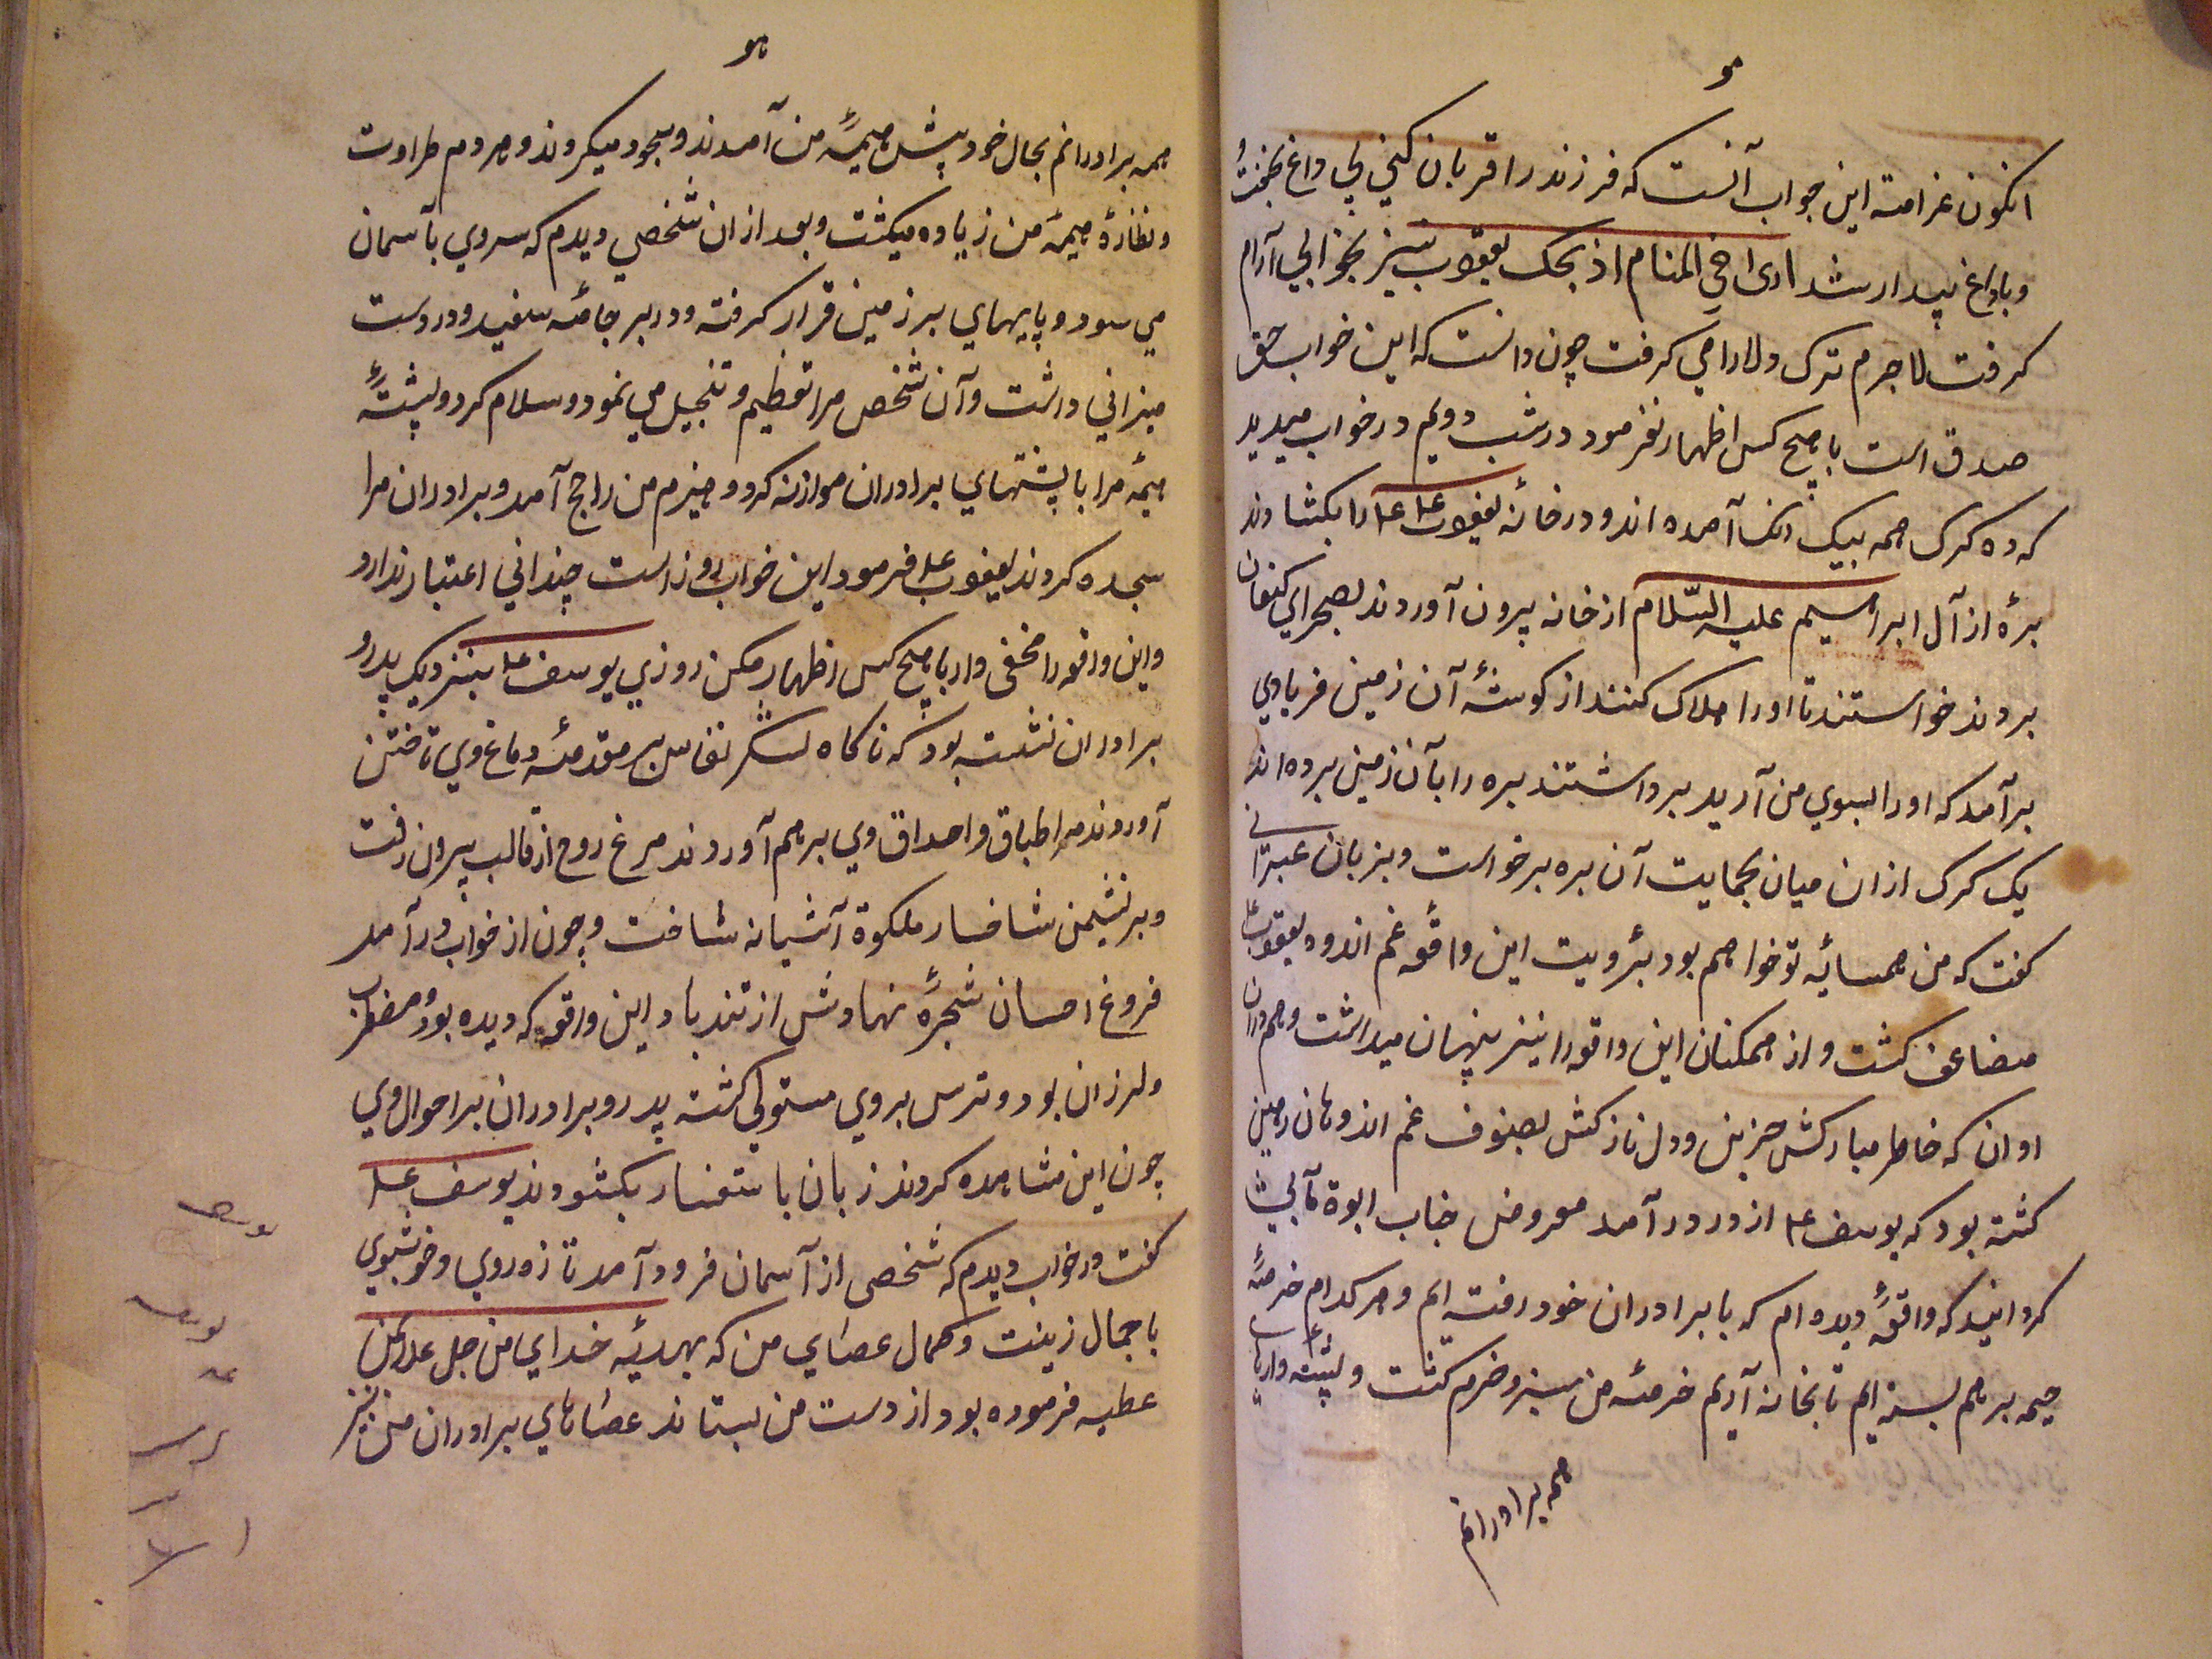 مو
اکنون غرامت این جواب آنست که فرزند را قربان کنی لی داغ
وباداغ بیدار شد اری فی المنام اذبحک یعقوب نیز بخوابی آرام
کرفت لاجرم ترک ولد را می کرفت چون دانست که این خواب حق
صدق است با هیچ کس اظهار نفرمود در شب دویم در خواب میدید
که ده کرک همه بیک آمده اند و در خانه یعقوب علم را بکشادند
برهٔ از آل ابراهیم علیه السّلام از خانه بیرون آوردند بصحرای کنعان
بردند خواستند تا اورا هلاک کنند از کوشهٔ آن زمین فریادی
برآمد که اورا بسوی من آرید برداشتند بره را بآن زمین برده اند
یک کرک از ان میان بحمایت آن بره برخواست وبزبان عبرانی
کفت که من همسایهٔ تو خواهم بود برویت این واقعه غم اندوه یعقوب علم
مضاعف کشت و از همکنان این واقعه را نیز پنهان میداشت وهم دران
اوان که خاطر مبارکش حزین ودل نازکش بصنوف غم اندوهان رهین
کشته بود که یوسف علم از در درآمد معروض جناب ابوة مآبی
کردانید که واقعهٔ دیده ام که با برادران خود رفته ایم وهر کدام خرمهٔ
هیمه بر هم بسته ایم تا بخانه آریم خرمهٔ من سبز وخرم کشت وپشته
همه برادرانم
هو
همه برادرانم بحال خود پیش هیمهٔ من آمدند وسجود میکردند وهردم طراوت
ونظارهٔ هیمهٔ من زیاده میکشت وبعد از ان شخصی دیدم که سروی بآسمان
می سود وپایهای برزمین قرار کرفته ودر بر جامهٔ سفید ودر دست
میزانی داشت وآن شخص مرا تعظیم وتبجیل می نمود وسلام کرد وپشتهٔ
هیمهٔ مرا با پشتهای برادران موازنه کرد وهیزم من راجح آمد وبرادران مرا
سجده کردند یعقوب علم فرمود این خواب روز است چندانی اعتبار ندارد
واین واقعه را مخفی دار با هیچ کس اظهار مکن روزی یوسف علم بنزدیک پدر و
برادران نشسته بود که ناکاه لشکر نعاس بر مقدمهٔ دماغ وی تاختن
آوردند مر اطباق واحداق وی برهم آوردند مرغ روح از قالب بیرون رفت
وبر نشیمن شاخسار ملکوة آشیانه شافت وچون از خواب درآمد
فروغ احسان شجرهٔ نهادش از تندباد این واقعه که دیده بود مضطرب
ولرزان بود وترس بروی مستولی کشته پدر وبرادران بر احوال وی
چون این مشاهده کردند زبان باستفسار بکشودند یوسف علم
کفت در خواب دیدم که شخصی از آسمان فرود آمد تازه روی وخوشبوی
باجمال زینت وکمال عصای من که بهدیهٔ خدای من جل علا بمن
عطیه فرموده بود از دست من بستاند عصاهای برادران من نیز